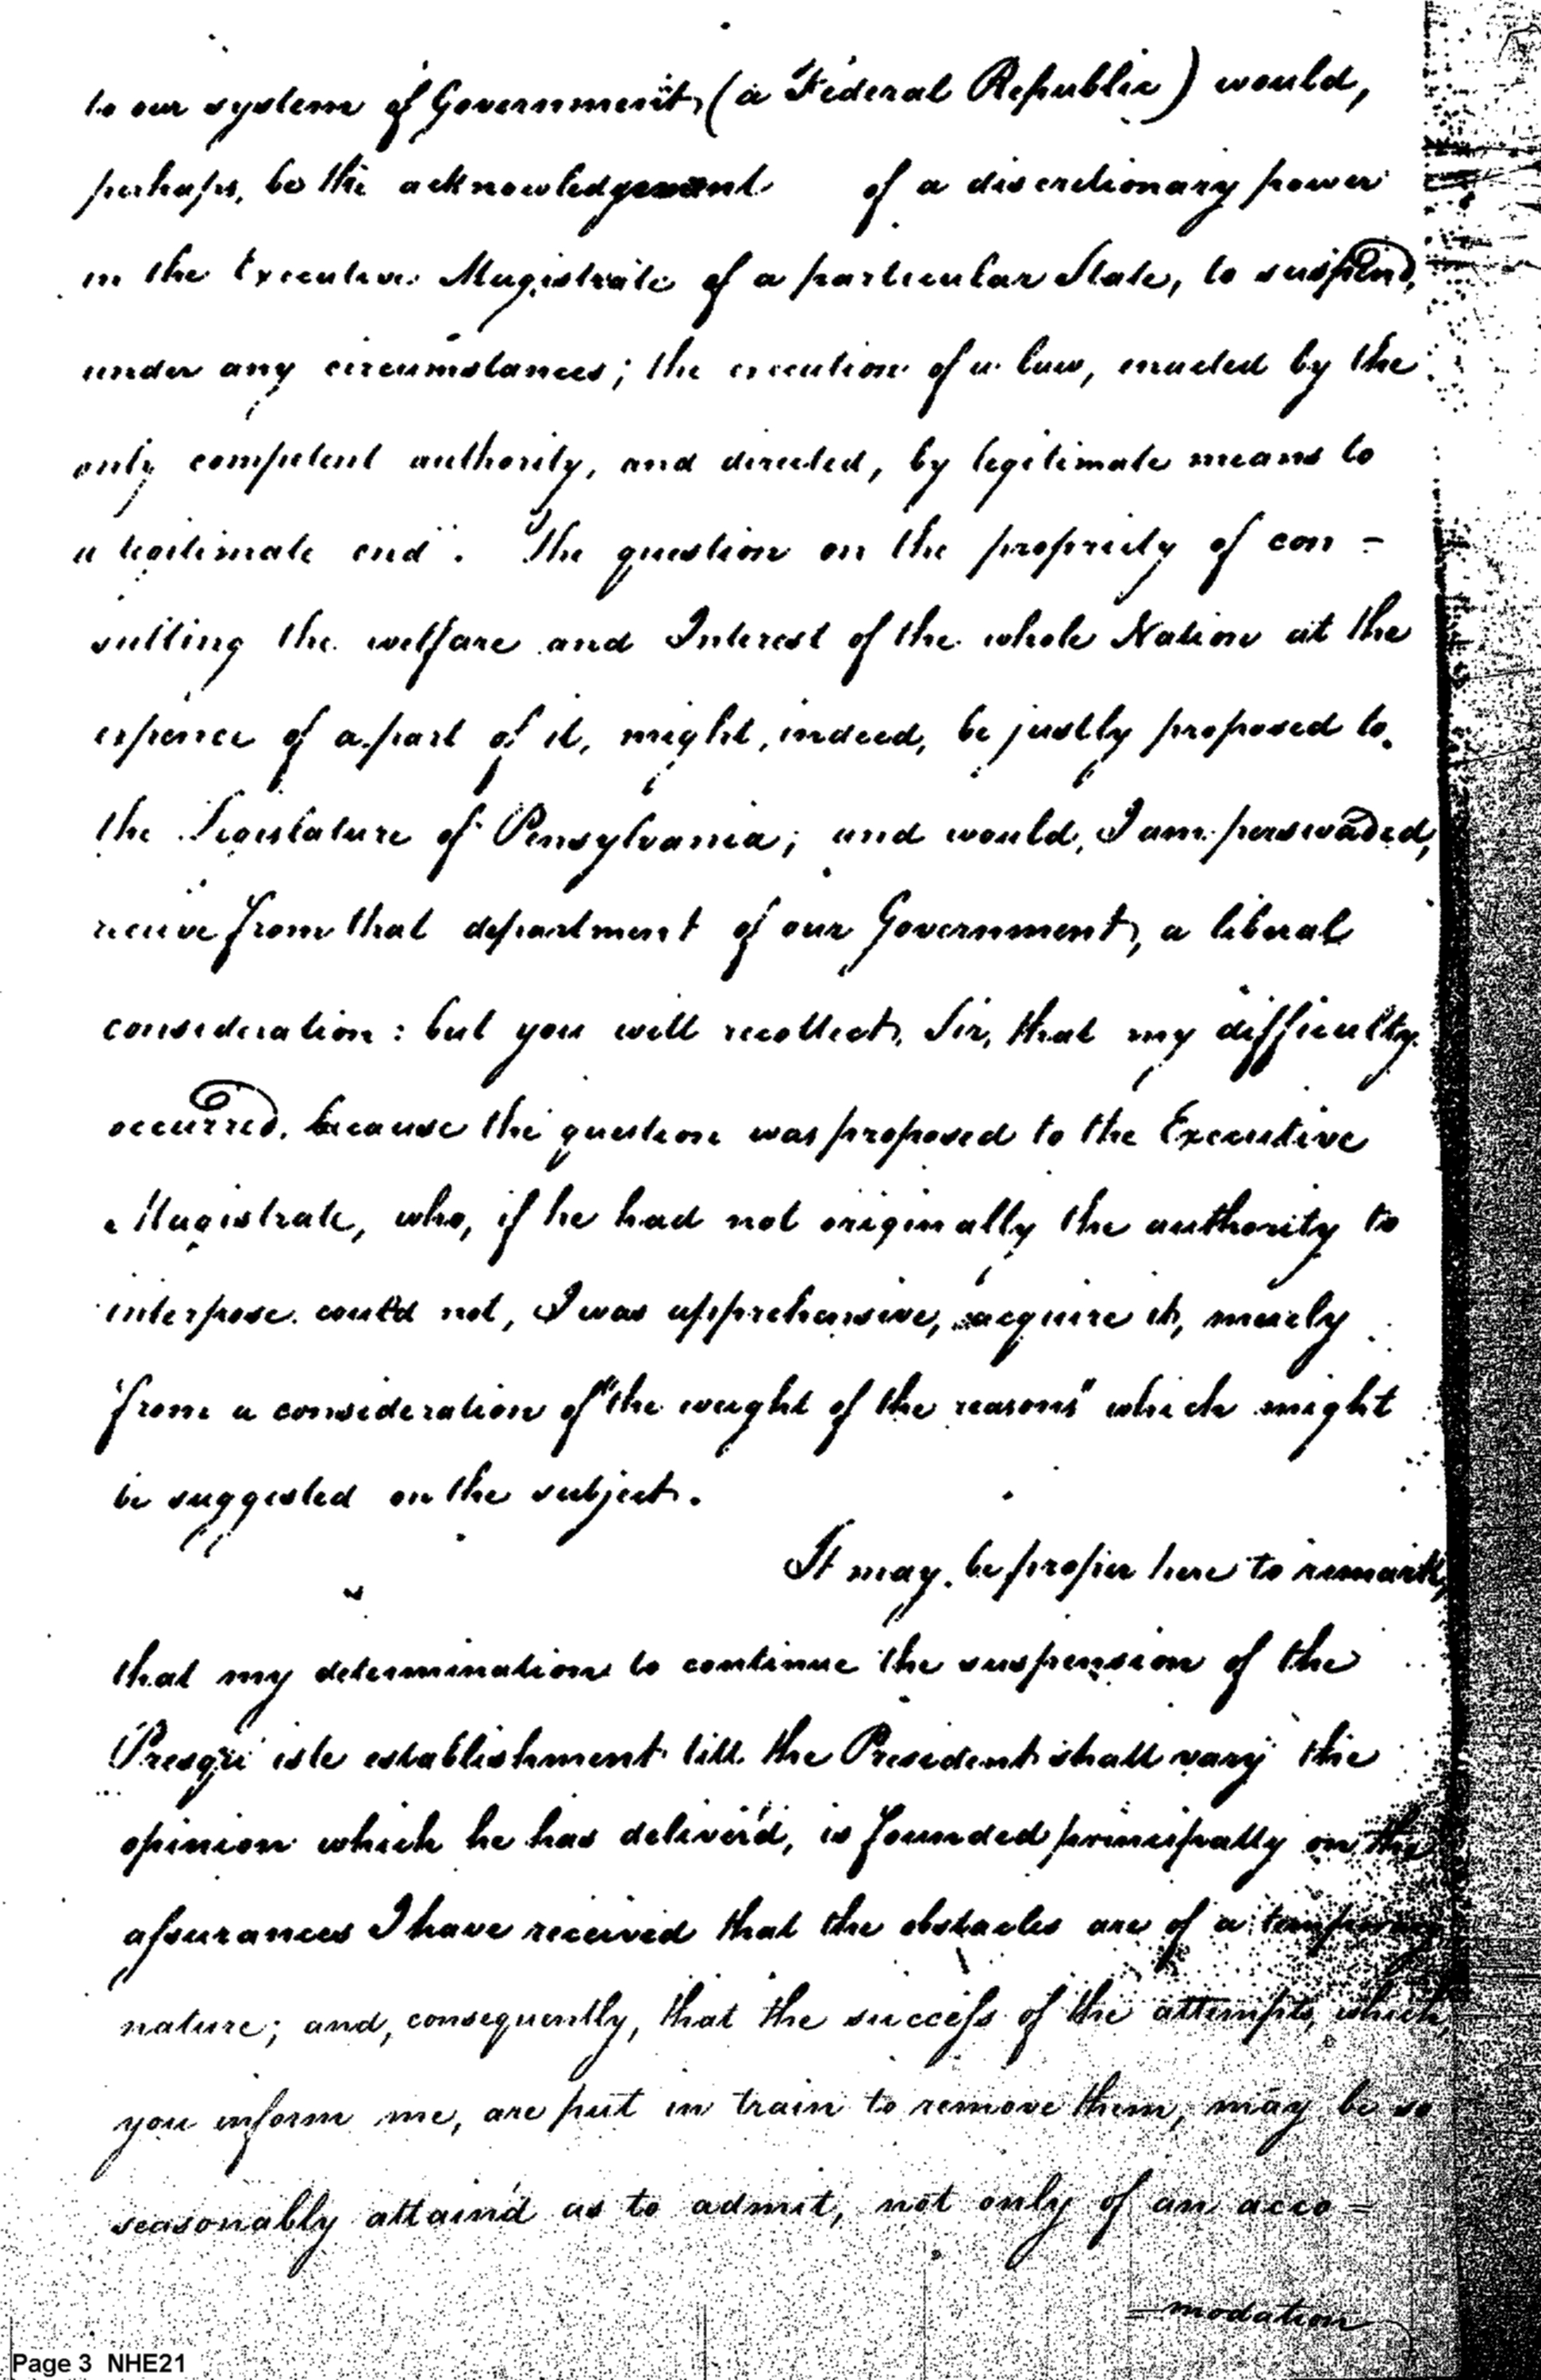 to our system of Government, (a Federal Republic) would,
perhaps, be the acknowledgement of a discretionary power
in the Executive Magistrate of a particular State, to suspend,
under any circumstances; the execution of a law, enacted by the
only competent authority, and directed, by legitimate means to
a legitimate end". The question on the propriety of con -
sulting the welfare and Interest of the whole Nation at the
expence of a part of it, might, indeed, be justly proposed to
the Legislature of Pensylvania; and would, I am perswaded,
receive from that department of our Government, a liberal
consideration: but you will recollect, Sir, that my difficulty
occurred, because the question was proposed to the Executive
Magistrate, who, if he had not originally the authority to
interpose could not, I was apprehensive, acquire it, merely
from a consideration of "the weight of the reasons" which might
be suggested on the subject.
It may be proper here to remark,
that my determination to continue the suspension of the
Presqu' isle establishment till the President shall vary the
opinion which he has deliver'd, is founded principally on the
assurances I have received that the obstacles are of a temporary
nature; and, consequently, that the success of the attempts, which,
you inform me, are put in train to remove them, may be so
seasonably attain'd as to admit, not only of an acco =
=modation
Page 3 NHE21